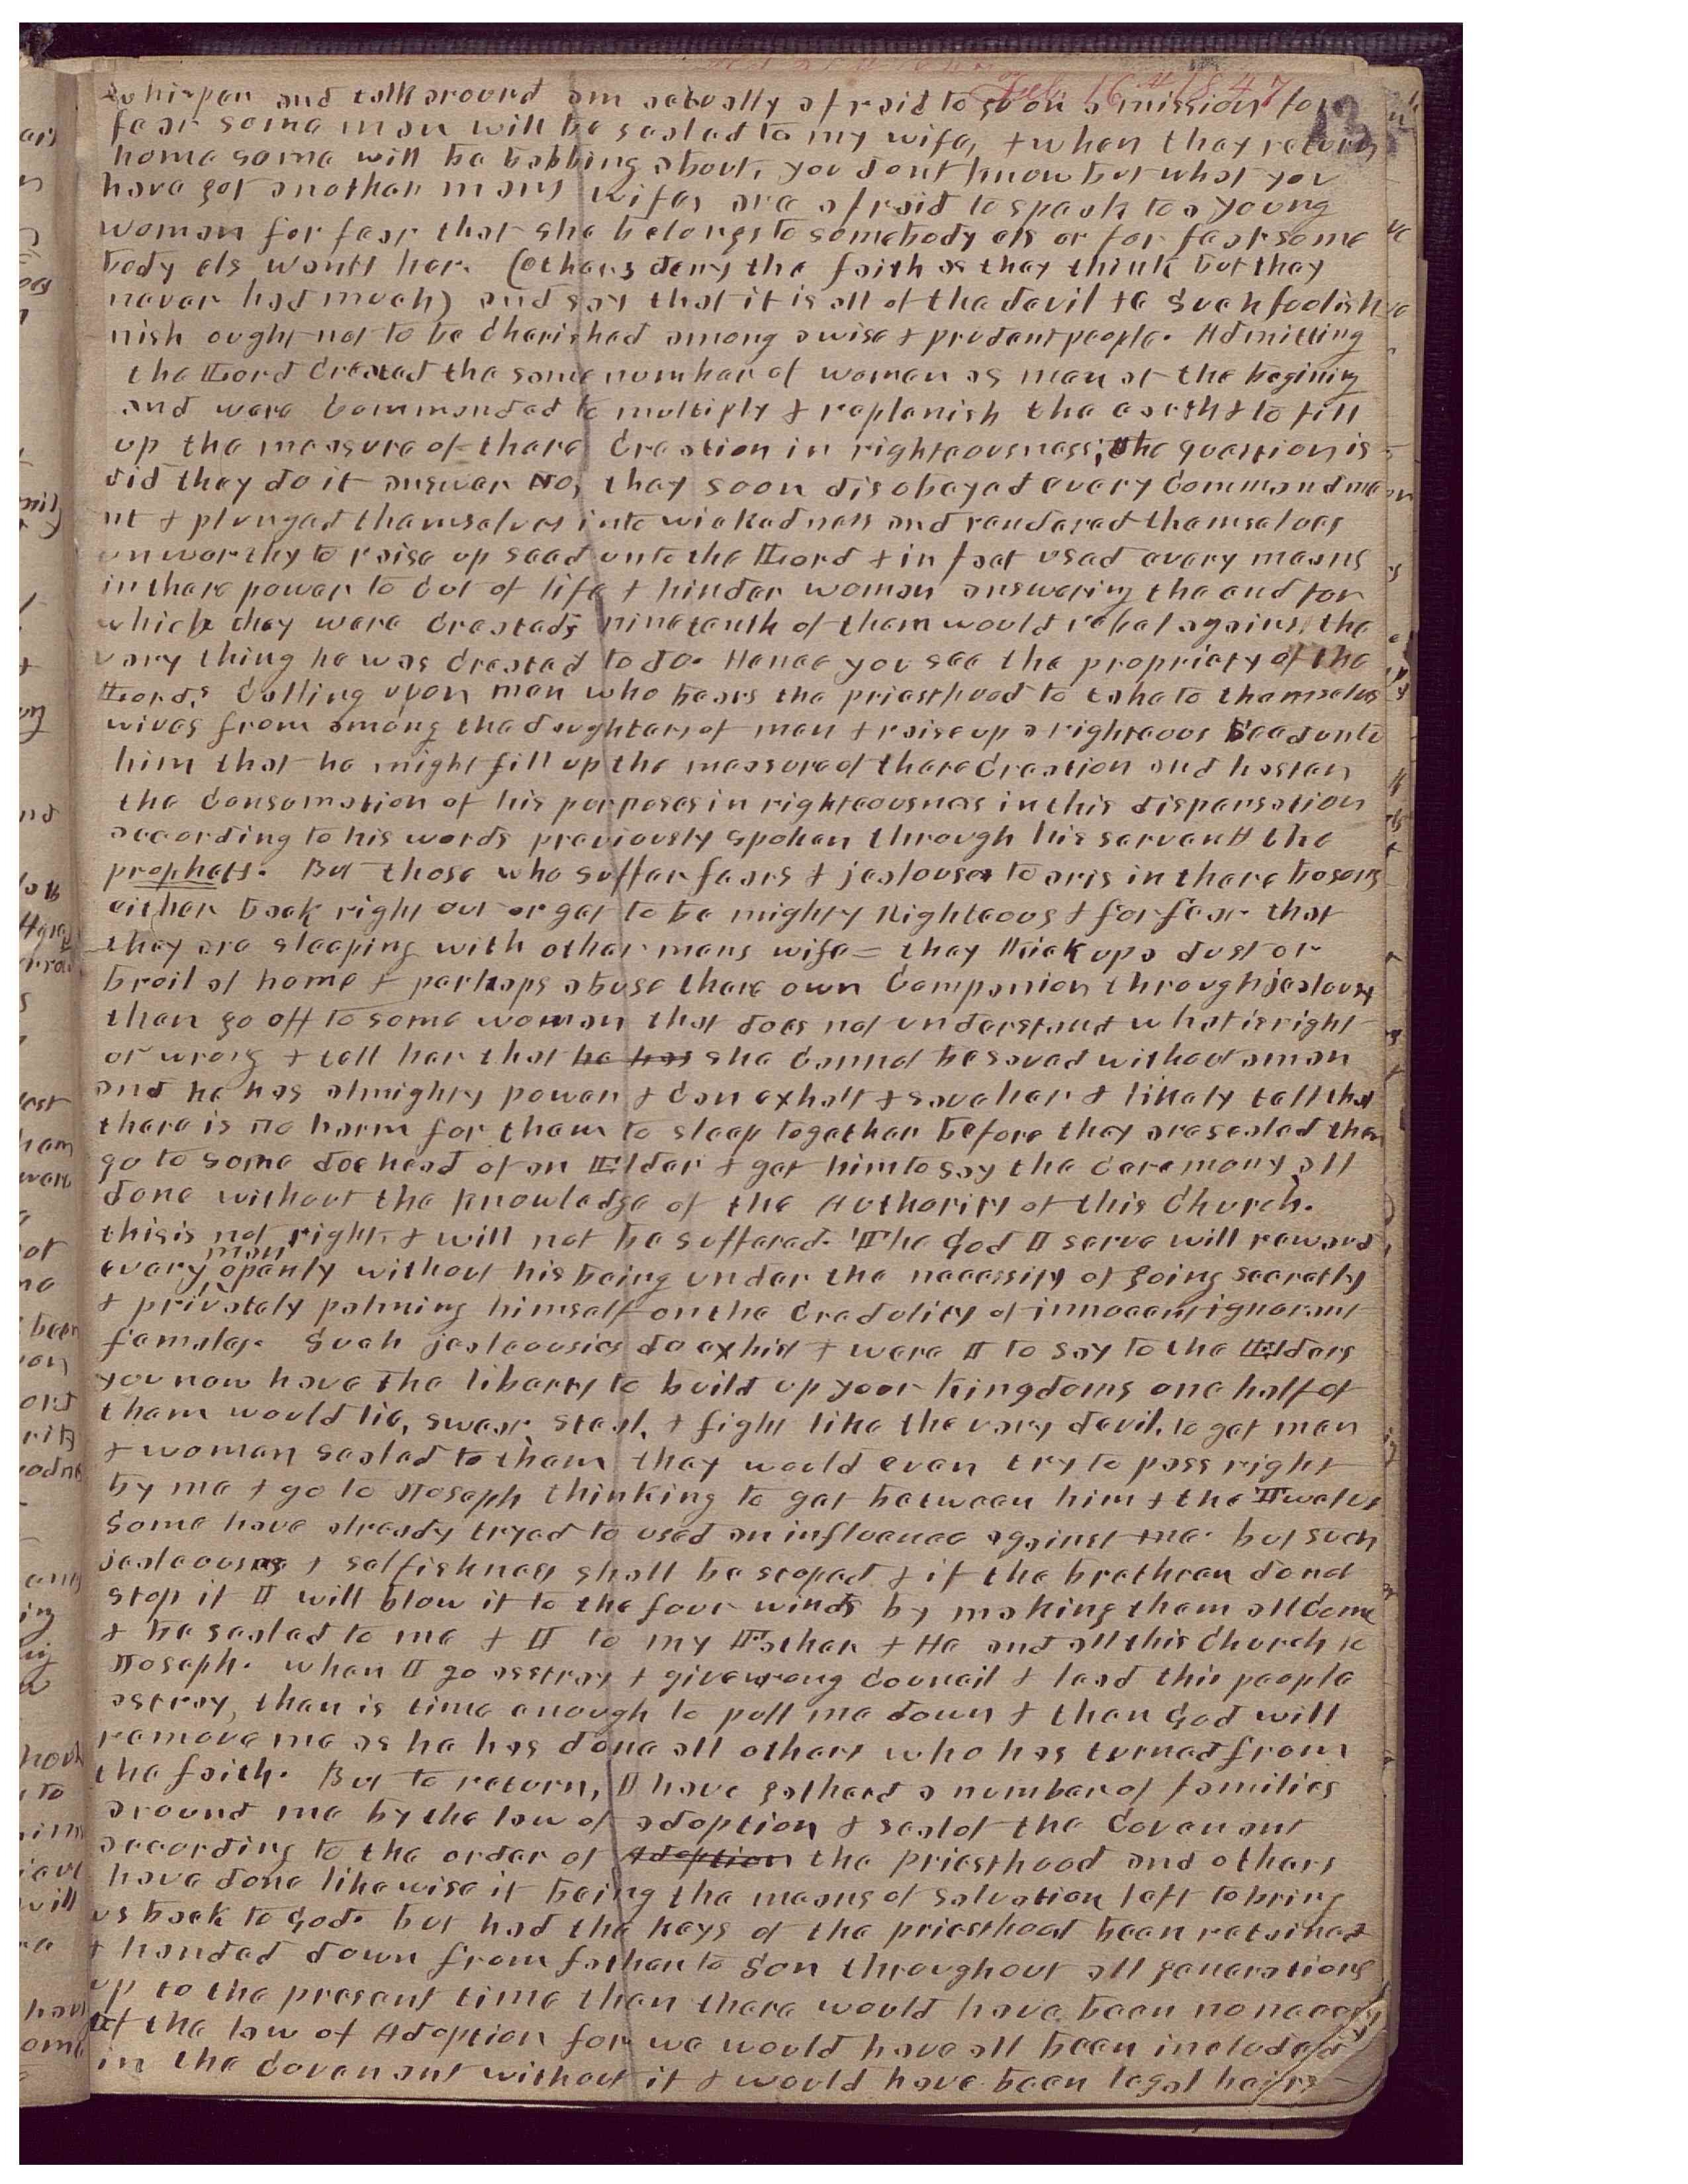 Feb. 16th 1847
13
whisper and talk around am actually afraid to go on a mission for
fear some man will be sealed to my wife, + when they return
home some will be babbing about, you dont know but what you
have got another mans wifes are afraid to speak to a young
woman for fear that she belongs to somebody els or for fear some
body els wants her. (others deny the faith as they think but they
never had much) and say that it is all of the devil +c Such foolish
nish ought not to be cherished among a wise + prudent people. Admitting
the Lord created the same number of women as men at the begining
and were commanded to multiply + replenish the earth + to fill
up the measure of there creation in righteousness; the question is
did they do it answer No, they soon disobeyed every commandme
nt + plunged themselves into wickedness and rendered themselves
unworthy to raise up seed unto the Lord + in fact used every means
in there power to cut of life + hinder woman answering the end for
which they were created; ninetenth of them would rebel against the
very thing he was created to do. Hence you see the propriety of the
Lords calling upon men who bears the priesthood to take to themselves
wives from among the daughters of men + raise up a righteous seed unto
him that he might fill up the measure of there creation and hasten
the consumation of his purposes in righteousness in this dispensation
according to his words previously spoken through his servant the
prophets. But those who suffer fears + jealouses to aris in there bosoms
either back right out or get to be mighty Righteous + for fear that
they are sleeping with other mans wife = they Kick up a dust or
broil at home + perhaps abuse there own Companion through jealousy
then go off to some woman that does not understand what is right
or wrong + tell her that he has she cannot be saved without a man
and he has almighty power + can exhalt + save her + likely tell that
there is no harm for them to sleep together before they are sealed then
go to some doehead of an Elder + get him to say the ceremony, all
done without the knowledge of the Authority of this Church.
this is not right, + will not be suffered. The God I serve will reward
every man openly without his being under the necessity of going secretly
+ privately palming himself on the credulity of innocent ignorant
females. Such jealoousies do exhist + were I to say to the Elders
you now have the liberty to build up your kingdoms one half of
them would lie, swear, steal, + fight like the very devil, to get men
+ woman sealed to them they would even try to pass right
by me + go to Joseph thinking to get between him + the Twelve
Some have already tryed to used an influence against me. but such
jealoousies + selfishness shall be stoped + if the brethren do not
stop it I will blow it to the four winds by making them all come
+ be sealed to me + I to my Father + He and all this Church to
Joseph. when I go asstray + give wrong council + lead this people
astray, then is time enough to pull me down + then God will
remove me as he has done all others who has turned from
the faith. But to return, I have gatherd a number of families
around me by the law of adoption + seal of the Covenant
according to the order of Adoption the priesthood and others
have done likewise it being the means of salvation left to bring
us back to God. but had the keys of the priesthood been retained
+ handed down from father to Son throughout all generations
up to the present time then there would have been no necesity
of the law of Adoption for we would have all been included
in the covenant without it + would have been legal heirs